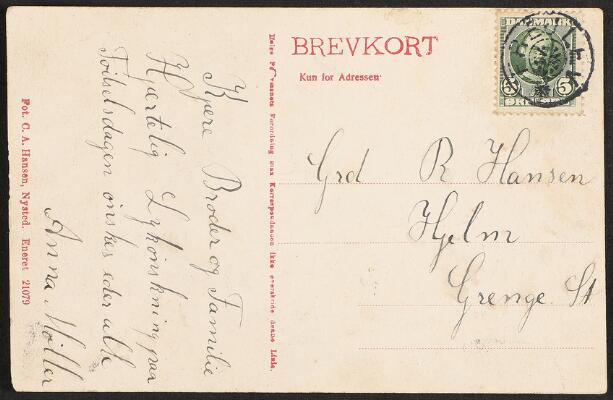 BREVKORT
Kun for Adressen
DANMARK
5 5
ØRE
Grd R Hansen
Hjelm
Grenge St
Kjære Broder og Familie
Hjærtelig Lykønskning paa
Födselsdagen ønskes eder alle
Anna Möller
Ifølge Postvæsenets Forordning maa Korrespondancen ikke overskride denne Linie.
Fot. C. A. Hansen, Nysted. Eneret 21079